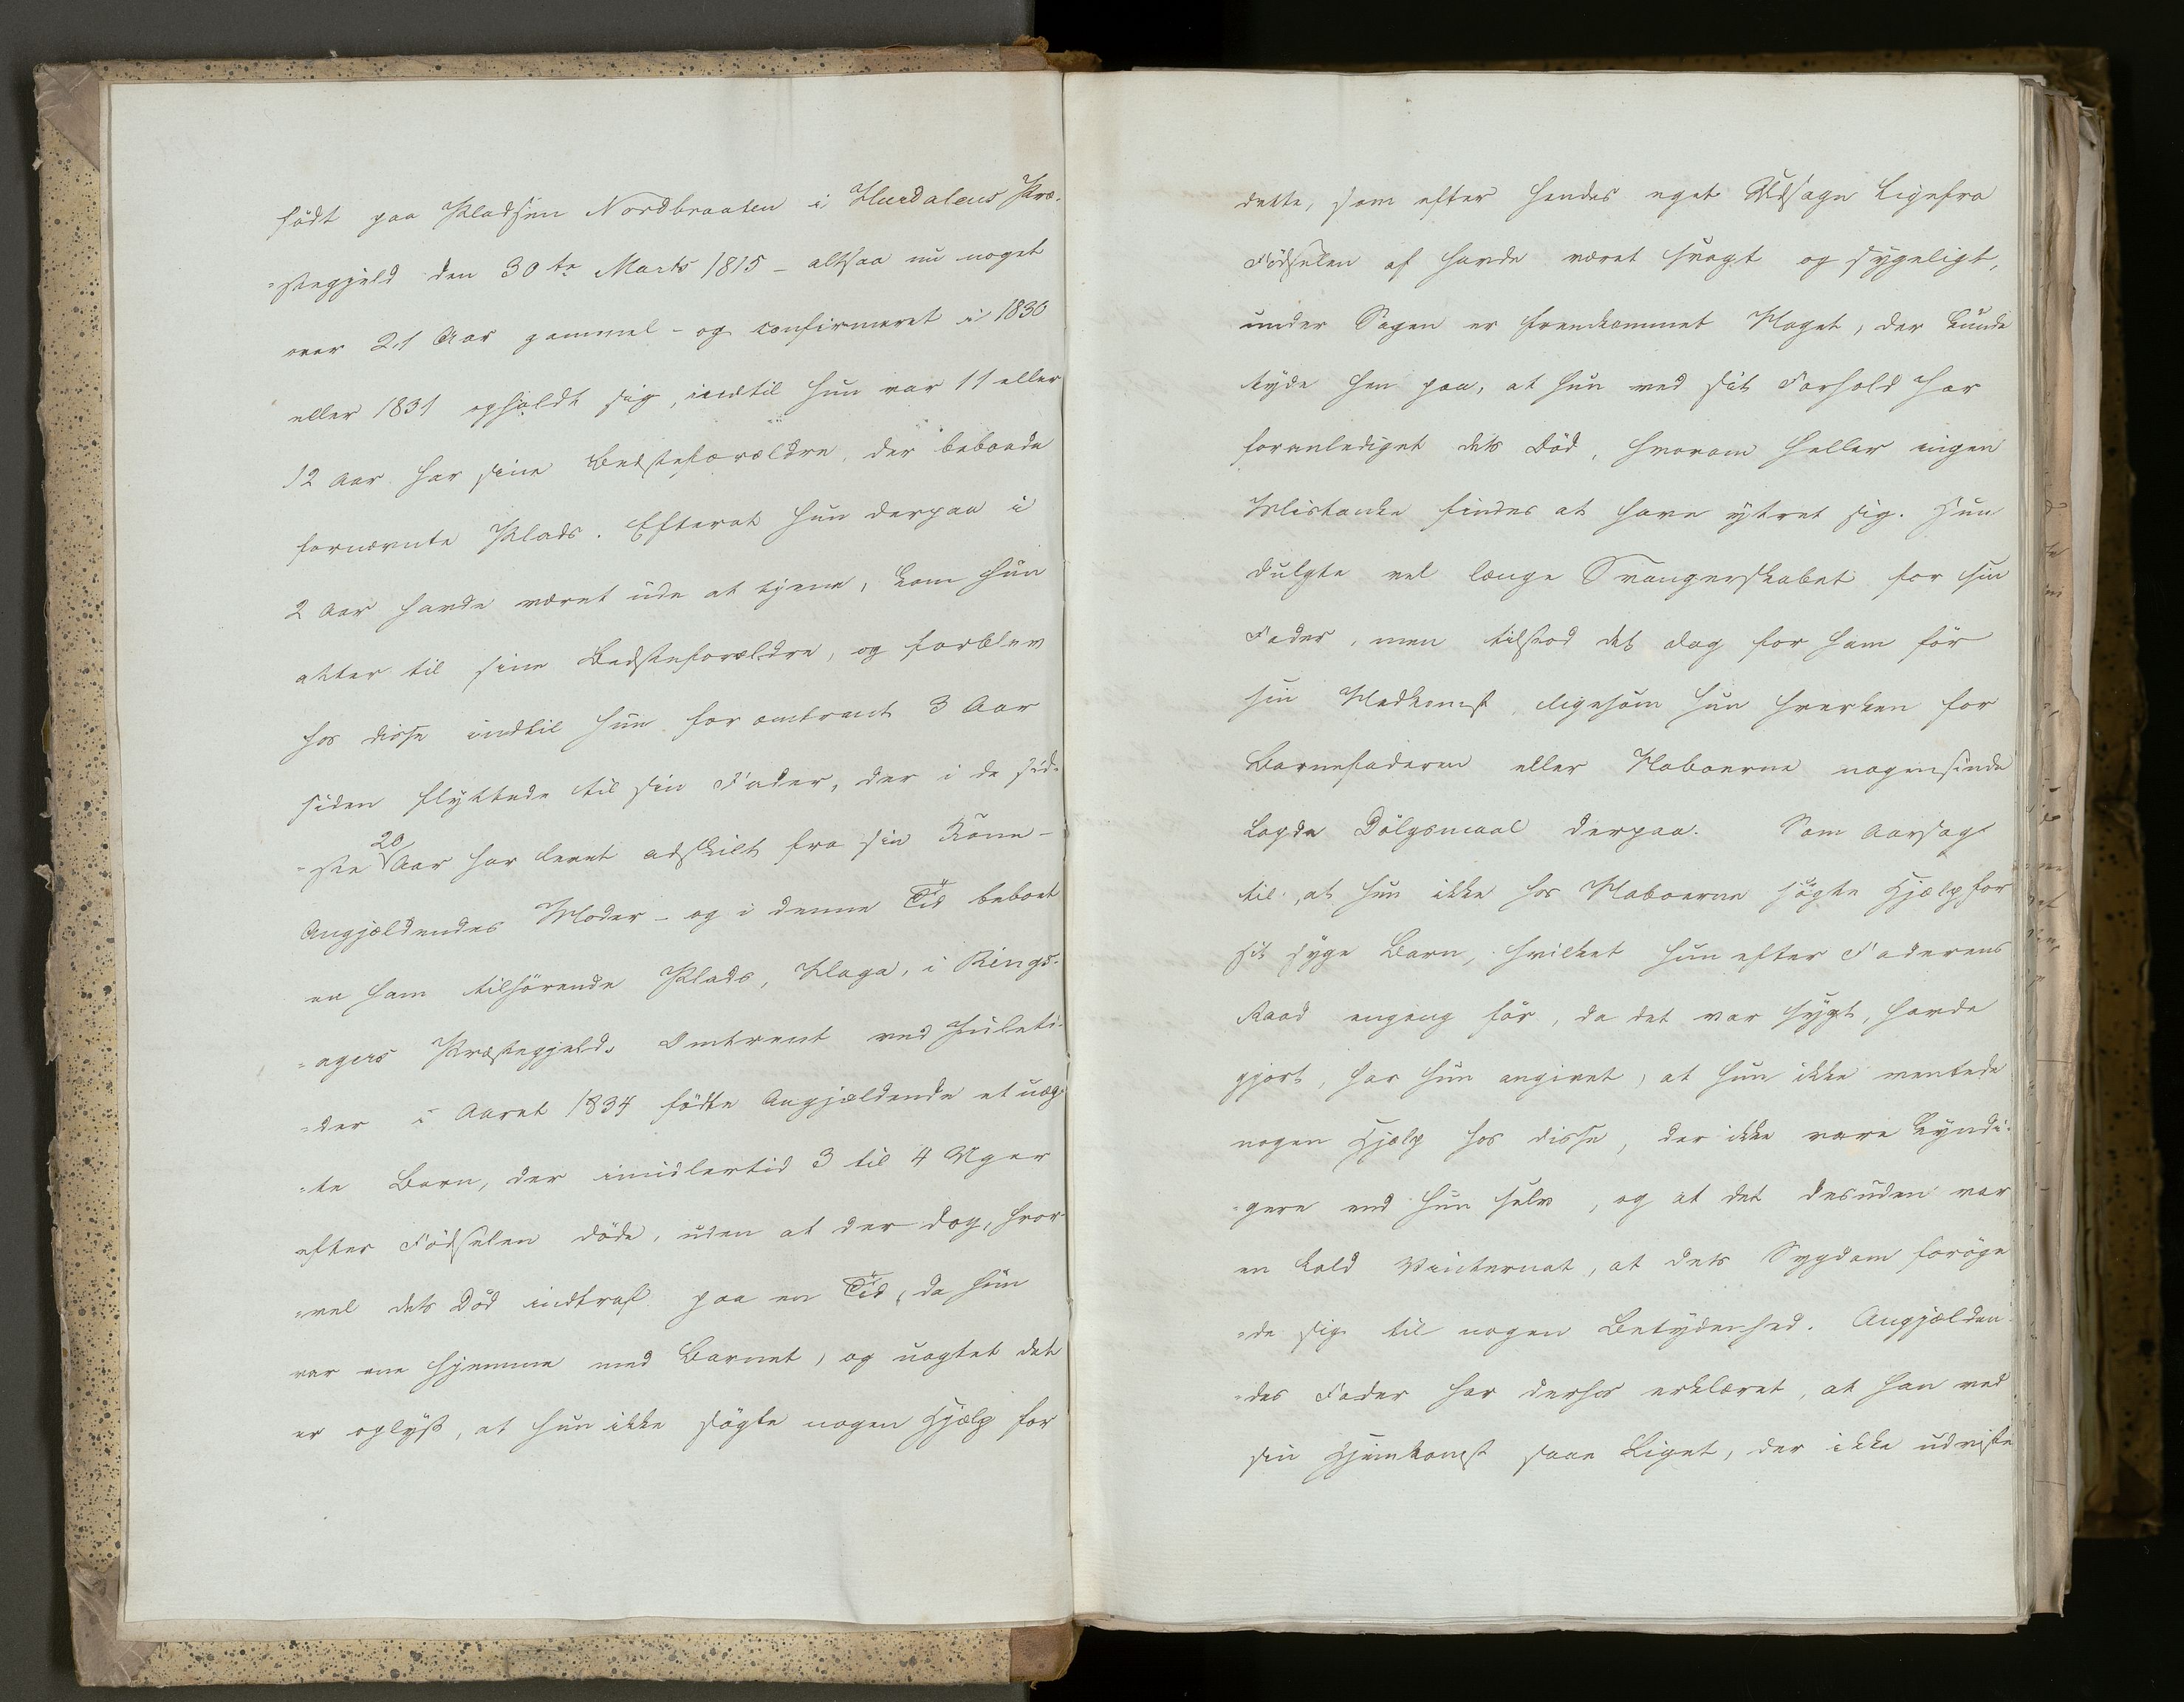 født paa Pladsen Nordbraaten i Hurdalens Præ-
=stegjeld den 30te Marts 1815 - altsaa nu noget
over 21 Aar gammel - og confirmeret i 1830
eller 1831 opholdt sig, indtil hun var 11 eller
12 Aar hos sine Bedsteforældre, der beboede
fornævnte Plads. Efterat hun derpaa i
2 Aar havde været ude at tjene, kom hun
atter til sine Bedsteforældre, og forblev
hos disse indtil hun for omtrent 3 Aar
siden flyttede til sin Fader, der i de sid-
=ste 20 Aar har levet adskilt fra sin Kone -
Angjældendes Moder - og i denne Tid beboet
en ham tilhørende Plads, Haga, i Rings-
=agers Præstegjeld. Omtrent ved Juleti-
=der i Aaret 1834 fødte Angjældende et uæg-
=te Barn, der imidlertid 3 til 4 Uger
efter Fødselen døde, uden at der dog, hvor-
=vel dets Død indtraf paa en Tid, da hun
var ene hjemme med Barnet, og uagtet det
er oplyst, at hun ikke søgte nogen Hjælp for
dette, som efter hendes eget Udsagn ligefra
Fødselen af havde været svagt og sygeligt,
under Sagen er fremkommet Noget, der kunde
tyde hen paa, at hun ved sit Forhold har
foranlediget dets Død, hvorom heller ingen
Mistanke findes at have ytret sig. Hun
dulgte vel længe Svangerskabet for sin
Fader, men tilstod det dog for ham før
sin Nedkomst, ligesom hun hverken for
Barnefaderen eller Naboerne nogensinde
lagde Dølgsmaal derpaa. Som Aarsag
til, at hun ikke hos Naboerne søgte Hjælp for
sit syge Barn, hvilket hun efter Faderens
Raad engang før, da det var sygt, havde
gjort, har hun angivet, at hun ikke ventede
nogen Hjælp hos disse, der ikke vare kyndi-
=gere end hun selv, og at det desuden var
en kold Vinternat, at dets Sygdom forøge-
=de sig til nogen Betydenhed. Angjælden-
=des Fader har derhos erklæret, at han ved
sin Hjemkomst saae Liget, der ikke udviste